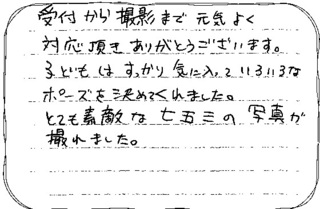 受付から撮影まで元気よく
対応頂きありがとうございます。
子どもはすっかり気に入っていろいろな
ポーズを決めてくれました。
とても素敵な七五三の写真が
撮れました。